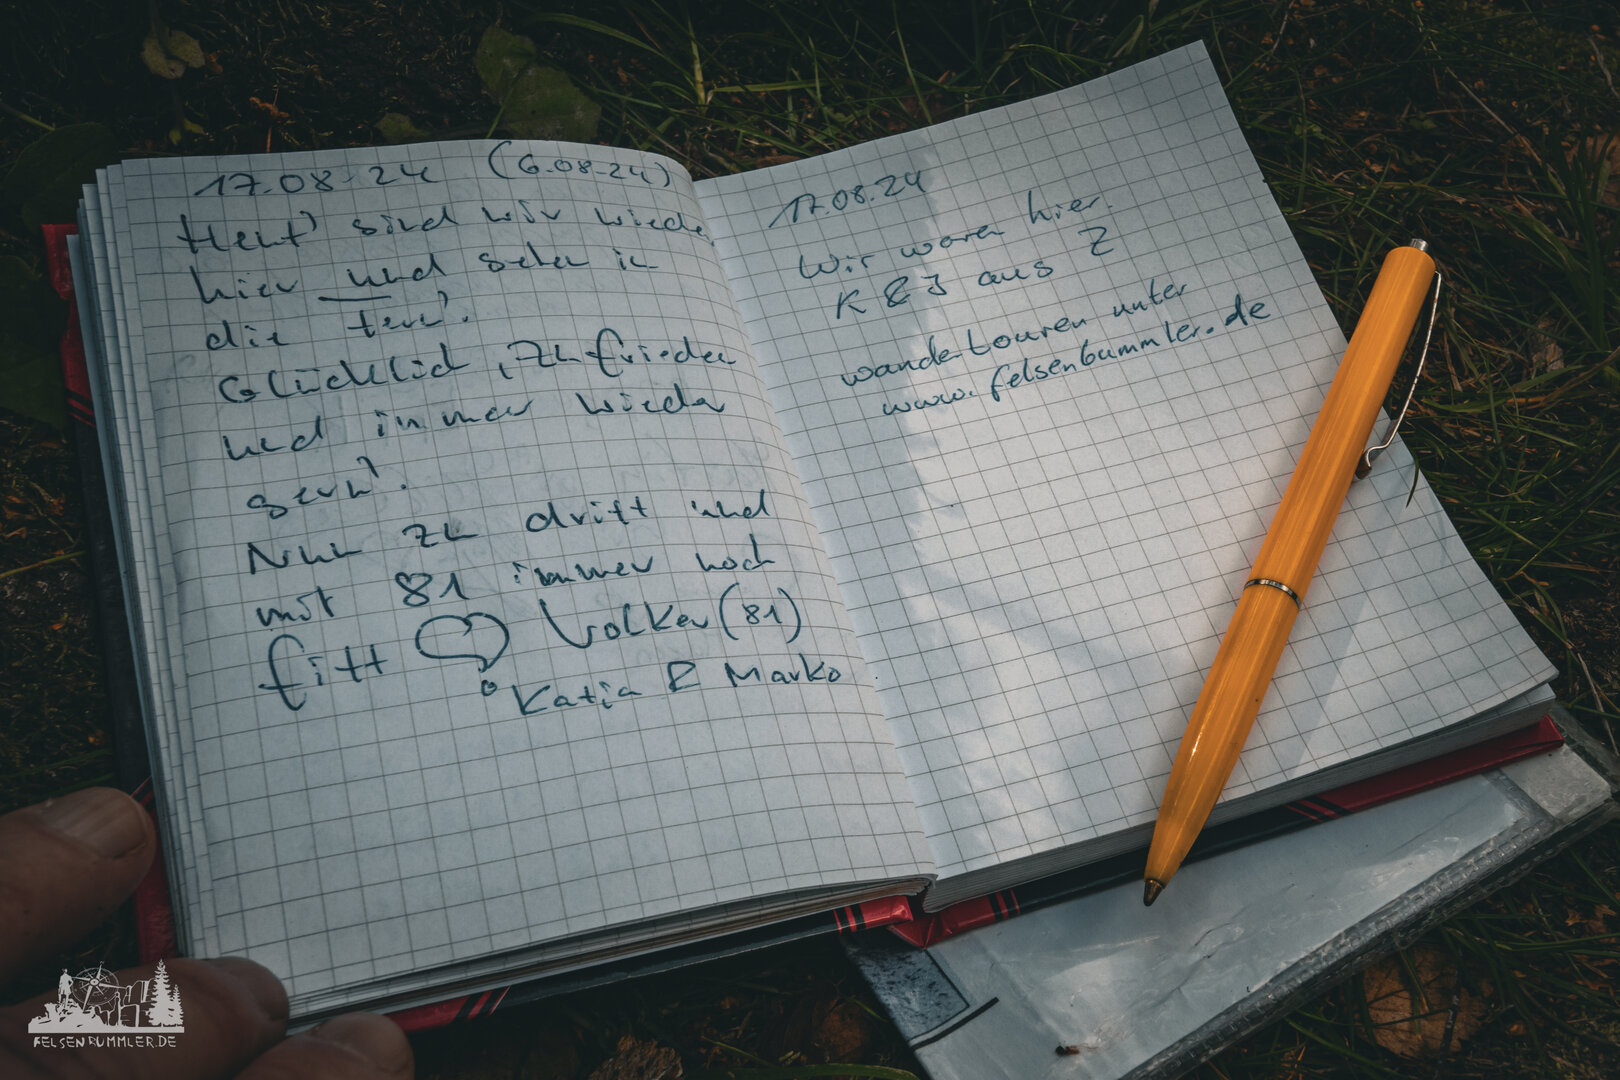 17.08.24 (6.08.24)
Heut' sind wir wieder
hier und sehen in
die
Glücklich, zufrieden
und immer wieder
gern'.
Nun zu dritt und
mit 81 immer noch
fitt Volker (81)
Katja & Marko
17.08.24
Wir waren hier.
K & J aus Z
wandertouren unter
www.felsenbummler.de
FELSENBUMMLER.DE